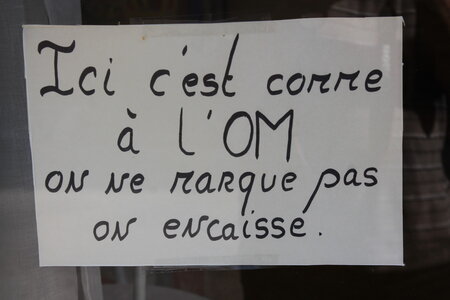 Ici c'est comme
à l'OM
on ne marque pas
on encaisse.